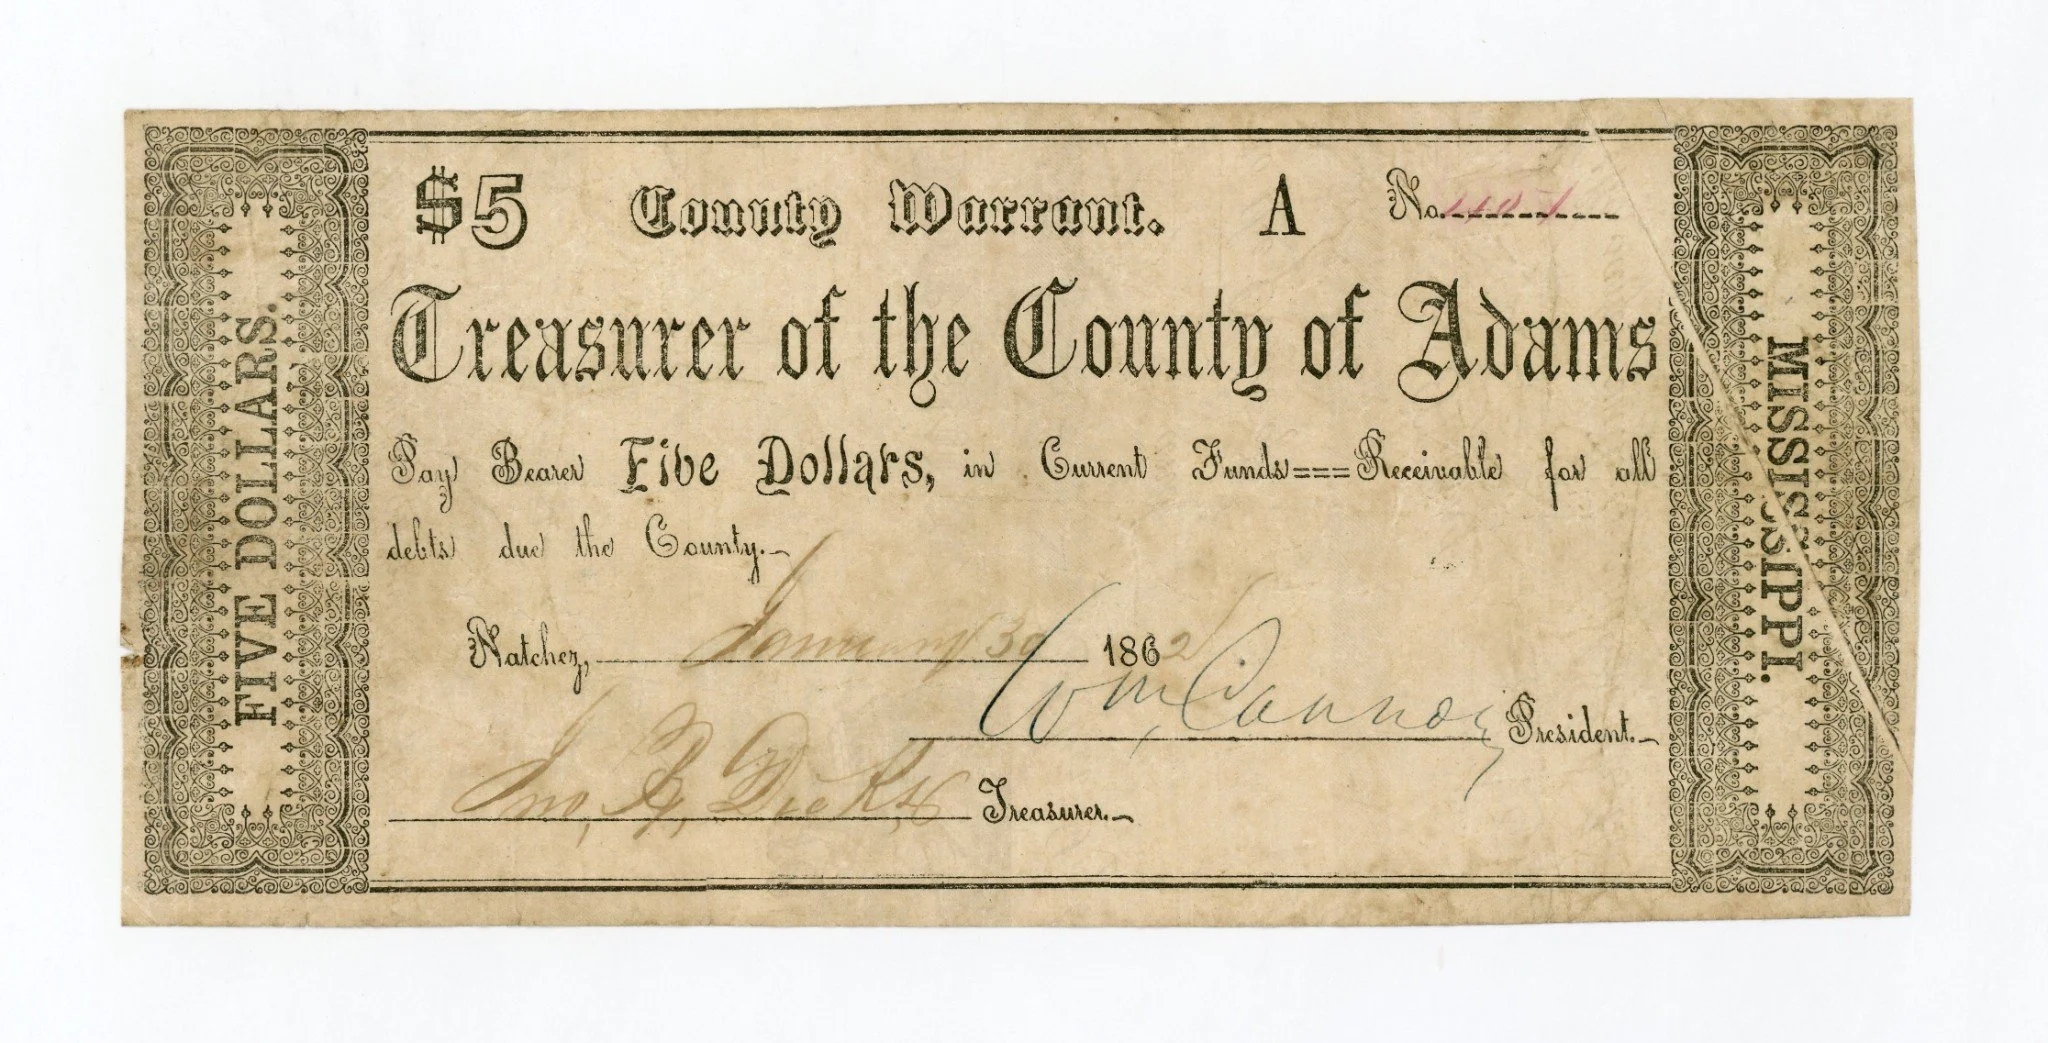 $5 County Warrant. A No.
Treasurer of the County of Adams
Pay Bearer Five Dollars, in Current Funds===Receivable for all
debts due the County.
Natchez, January 30 1862
Wm, Cannon President.
Jno, R, Dicks Treasurer.
FIVE DOLLARS.
MISSISSIPPI.